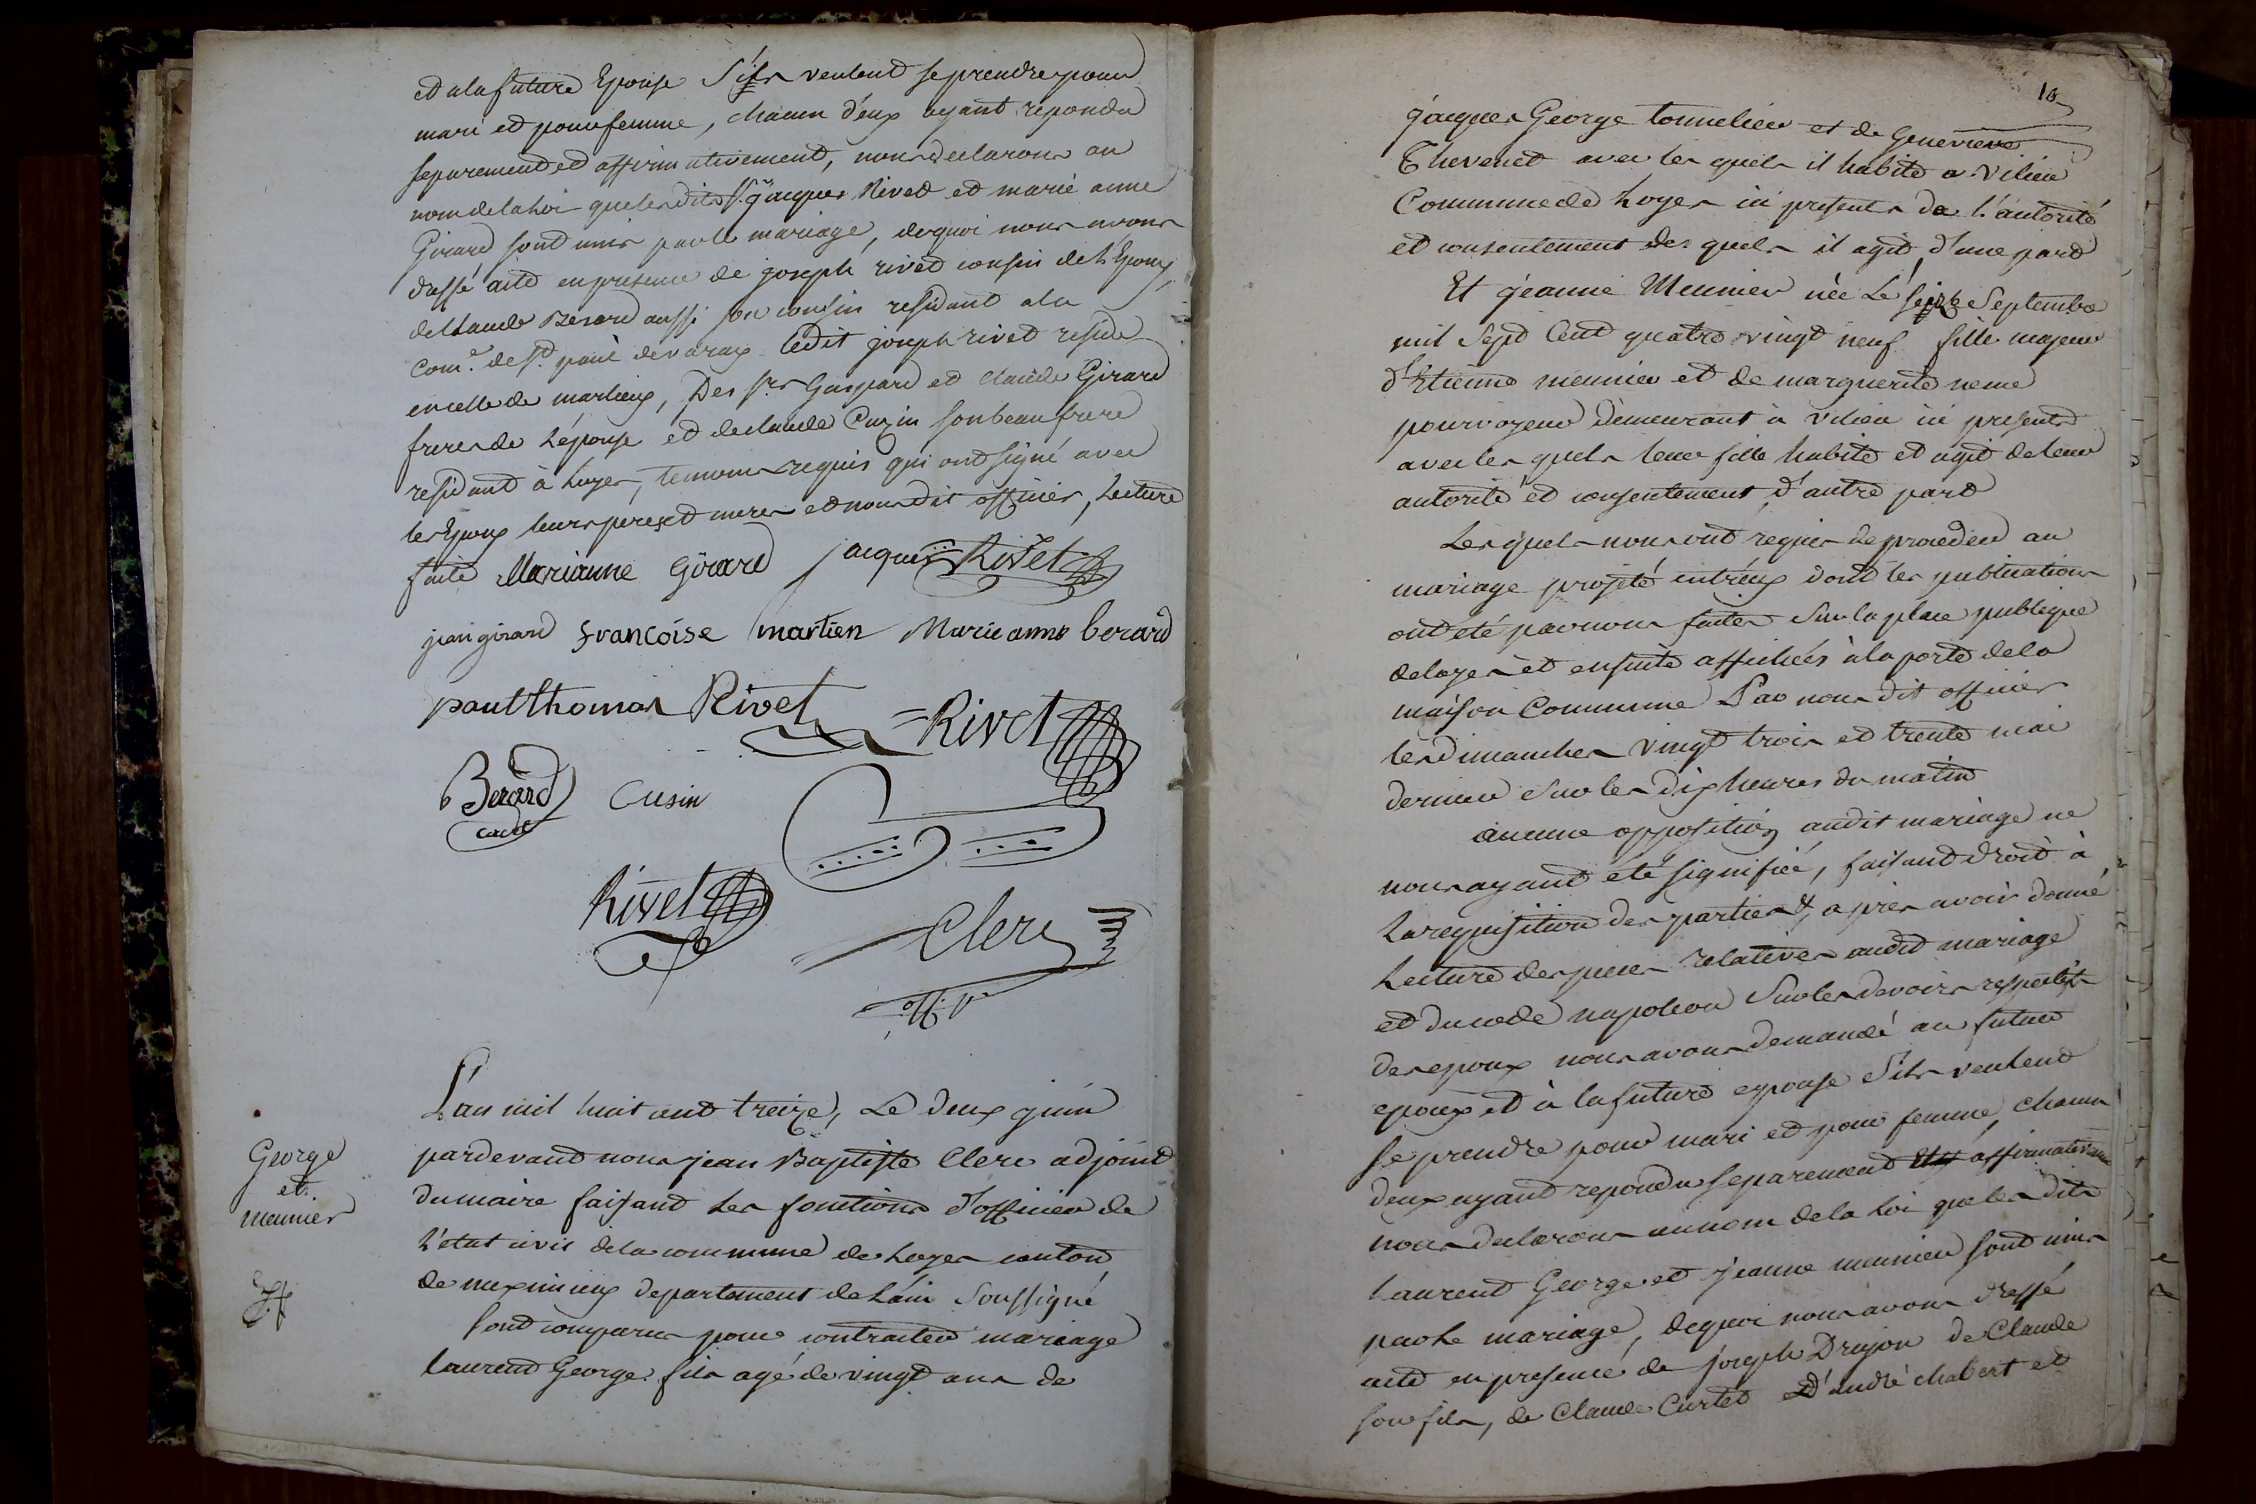 et a la future Epouse S'ils veulent se prendre pour
mari et pour femme, chacun d'eux ayant repondu
separement et affirmativement, nous declarons au
nom de la Loi que lesdits Sr. jacques Rivet et marie anne
Girard sont unis par le mariage, de quoi nous avons
dressé acte en presence de joseph rivet cousin de L'Epoux,
de Claude Berard aussi son cousin residant a la
Com.e de St. paul de varax ledit joseph rivet reside
en celle de marlieux, Des Srs Gaspard et Claude Girard
freres de L'épouse et de claude Cuzin son beau frere
residant à Loyes, temoins requis qui ont signé avec
les Epoux leurs peres et meres et nous dit officier, Lecture
faite Marianne Girard jacques Rivet
jean girard francoise martien Marie anne berard
paul thomas Rivet Rivet
Berard Cusin
cadet
Rivet
Clerc
off. p
L'an mil huit cent treize, Le deux juin
pardevant nous jean Baptiste Clerc adjoint
du maire faisant Les fonctions d'officier de
L'etat civil de la commune de Loyes canton
de meximieux departement de L'ain Soussigné
George
et
meunier
Sont comparus pour contracter mariage
laurent George fils agé de vingt ans de
18
jacques George tonnelier et de Genevieve
Thevenet avec les quels il habite a Vilieu
Commune de Loyes ici presents de L'autorité
et consentement des quels il agit d'une part
Et jeanne Meunier née Le seize Septembre
mil Sept Cent quatre vingt neuf fille majeure
d'Etienne meunier et de marguerite neme
pourvoyeur demeurant à vilieu ici presents
avec les quels leur fille habite et agit de leur
autorité et consentement d'autre part
Les quels nous ont requis de proceder au
mariage projeté entr'eux dont les publications
ont été par nous faites Sur la place publique
de loyes et ensuite affichées à la porte de la
maison Commune Par nous dit officier
les dimanches vingt trois et trente mai
dernier Sur les dix heures du matin
aucune opposition audit mariage ne
nous ayant été signifiée, faisant droit à
La requisition des parties, apres avoir donné
Lecture des pieces relatives audit mariage
et du code napoleon Sur les devoirs respectifs
des epoux nous avons demandé au futur
epoux et à la future epouse S'ils veulent
se prendre pour mari et pour femme, chacun
deux ayant repondu separement et affirmativement
nous declarons au nom de la Loi que lesdits
Laurent George et jeanne meunier sont unis
par le mariage, de quoi nous avons dressé
acte en presence de joseph Drujon de Claude
son fils, de Claude Curtet et d'andré chabert et